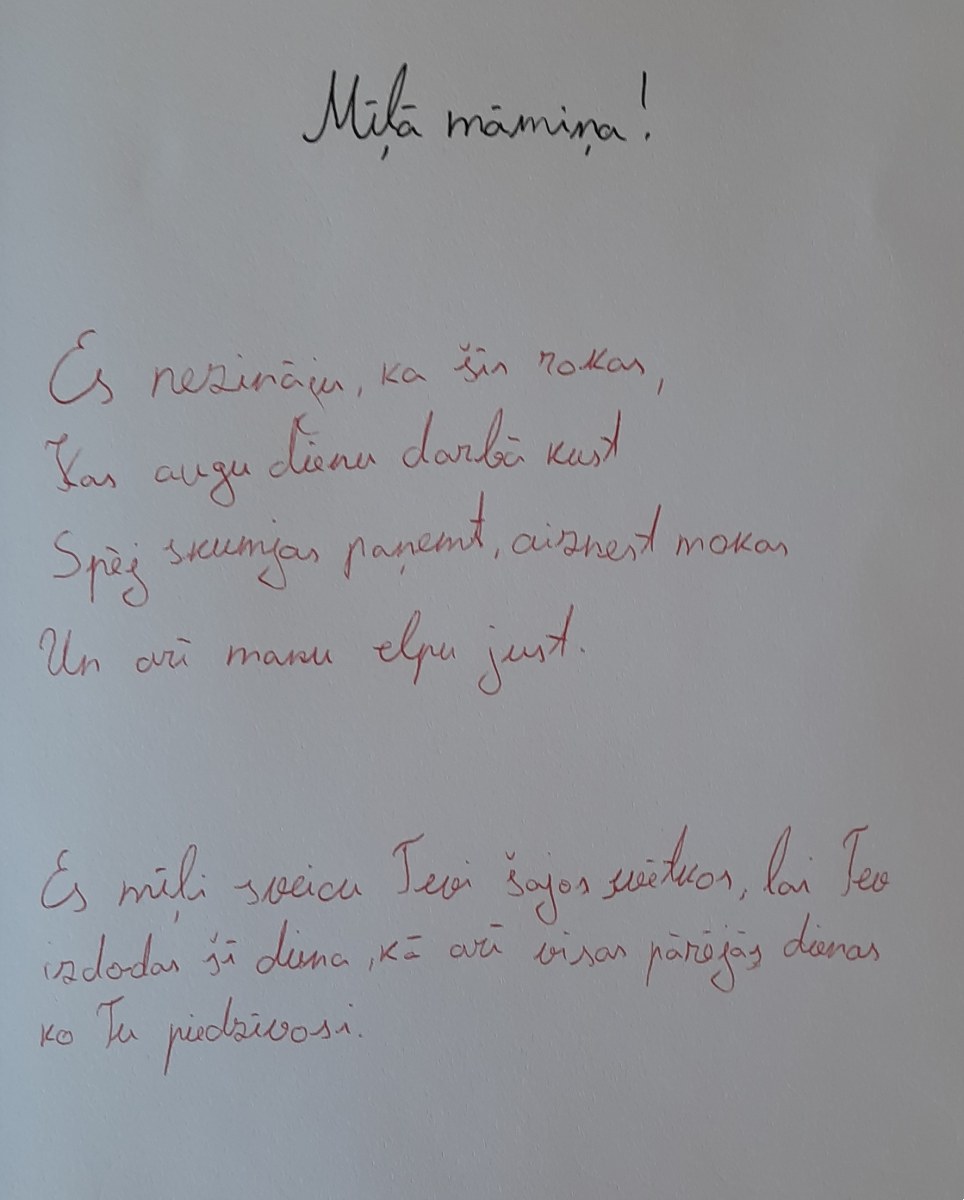 Mīļā māmiņa!
Es nezināju, ka šīs rokas,
Kas augu dienu darbā kust
Spēj skumjas paņemt, aiznest mokas
Un arī manu elpu just.
Es mīļi sveicu Tevi šajos svētkos, lai Tev
izdodas šī diena, kā arī visas pārējās dienas
ko Tu piedzīvosi.